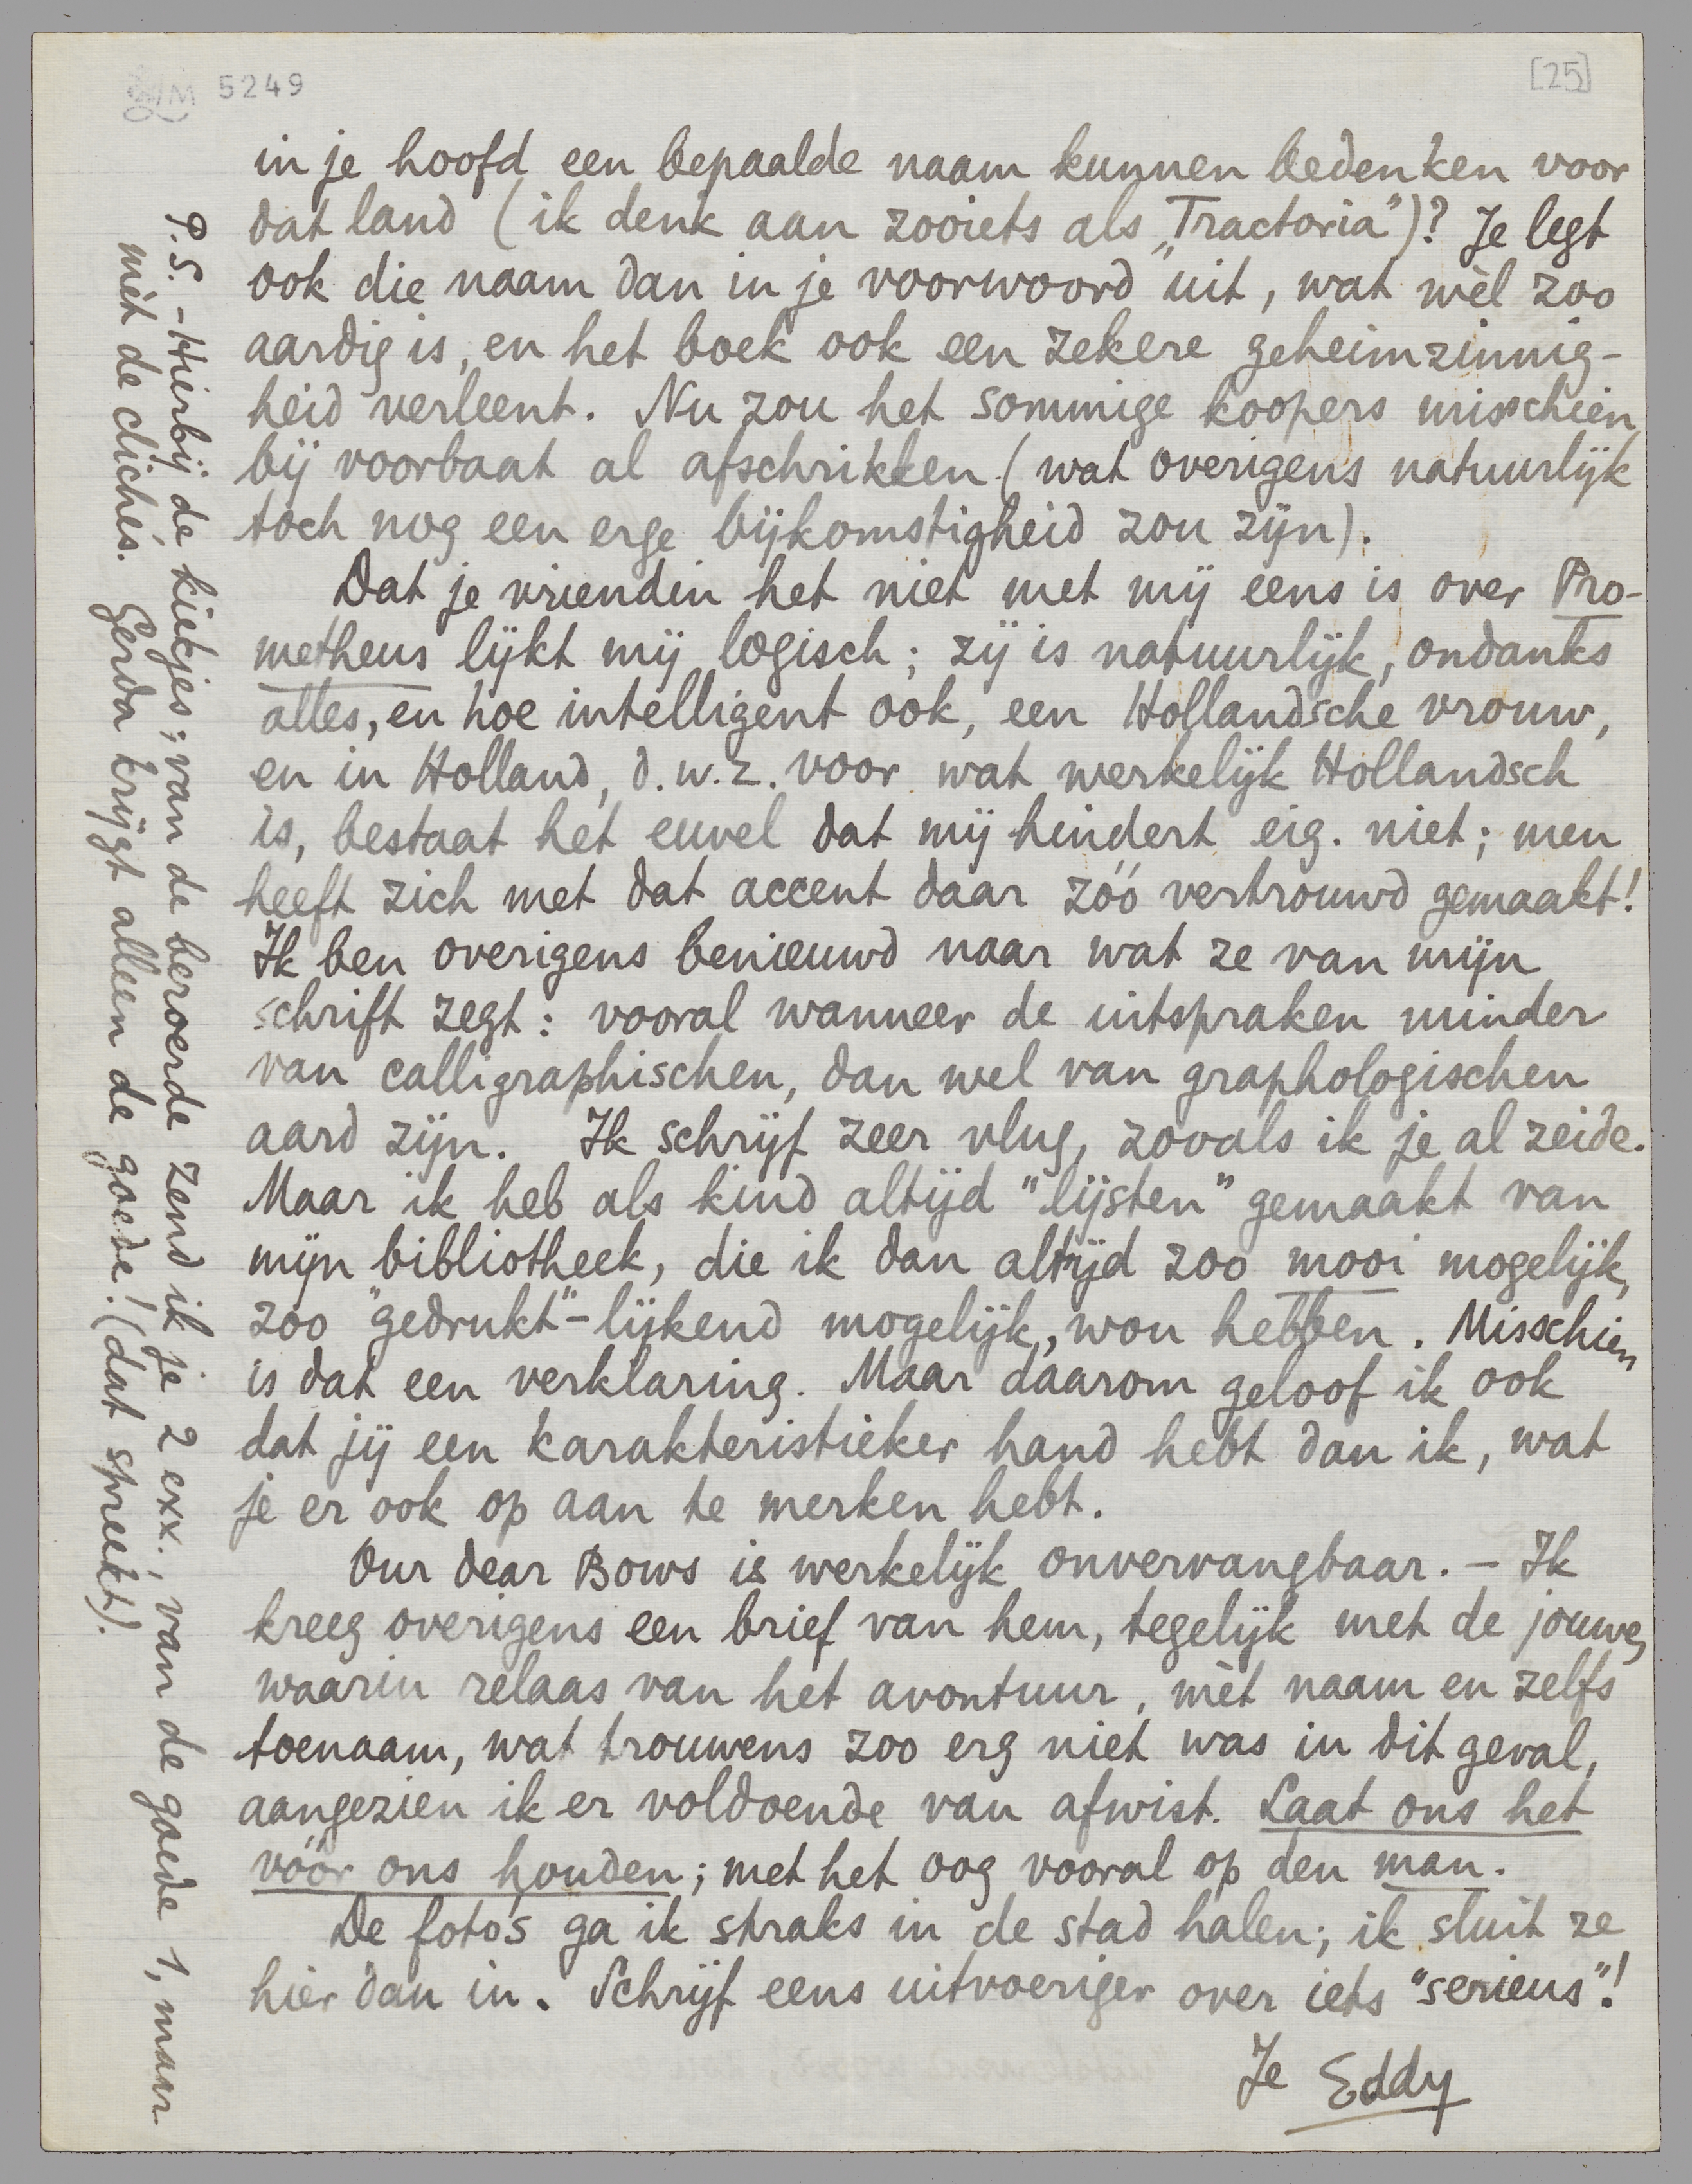 5249
[25]
in je hoofd een bepaalde naam kunnen bedenken voor
dat land (ik denk aan zooiets als „Tractoria”)? Je legt
ook die naam dan in je voorwoord uit, wat wèl zoo
aardig is, en het boek ook een zekere geheimzinnig-
heid verleent. Nu zou het sommige koopers misschien
bij voorbaat al afschrikken (wat overigens natuurlijk
toch nog een erge bijkomstigheid zou zijn).
Dat je vriendin het niet met mij eens is over Pro-
metheus lijkt mij logisch; zij is natuurlijk, ondanks
alles, en hoe intelligent ook, een Hollandsche vrouw,
en in Holland, d.w.z. voor wat werkelijk Hollandsch
is, bestaat het euvel dat mij hindert eig. niet; men
heeft zich met dat accent daar zóó vertrouwd gemaakt!
Ik ben overigens benieuwd naar wat ze van mijn
schrift zegt: vooral wanneer de uitspraken minder
van calligraphischen, dan wel van graphologischen
aard zijn. Ik schrijf zeer vlug, zooals ik je al zeide.
Maar ik heb als kind altijd "lijsten" gemaakt van
mijn bibliotheek, die ik dan altijd zoo mooi mogelijk,
zoo "gedrukt"-lijkend mogelijk, wou hebben. Misschien
is dat een verklaring. Maar daarom geloof ik ook
dat jij een karakteristieker hand hebt dan ik, wat
je er ook op aan te merken hebt.
Our dear Bows is werkelijk onvervangbaar. – Ik
kreeg overigens een brief van hem, tegelijk met de jouwe,
waarin relaas van het avontuur, mèt naam en zelfs
toenaam, wat trouwens zoo erg niet was in dit geval,
aangezien ik er voldoende van afwist. Laat ons het
vóór ons houden; met het oog vooral op den man.
De foto's ga ik straks in de stad halen; ik sluit ze
hier dan in. Schrijf eens uitvoeriger over iets "serieus"!
Je Eddy
P.S. – Hierbij de kiekjes; van de beroerde zend ik je 2 exx., van de goede 1, maar
mèt de clichés. Gerda krijgt alleen de goede! (dat spreekt).